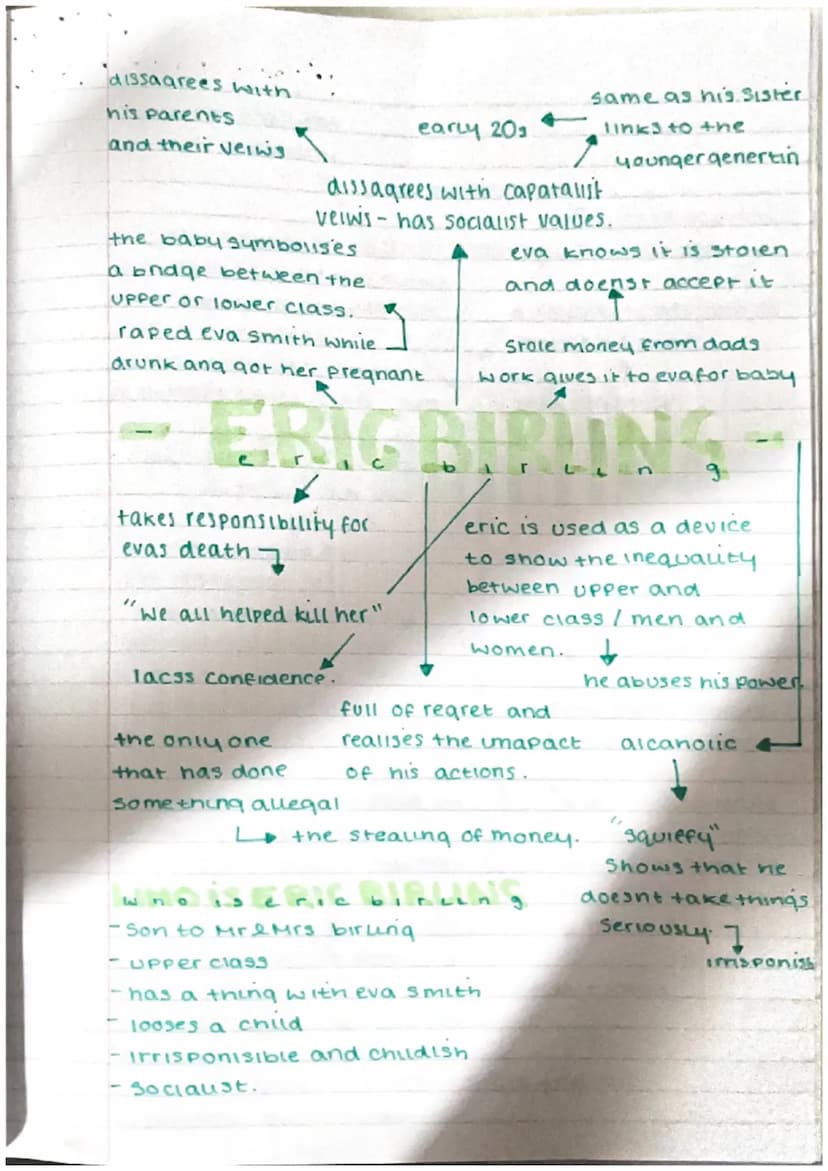 dissagrees with
his parents
and their veiws
same as his sister
early 20s
links to the
younger genertin
dissagrees with capatalist
veiws - has socialist values.
the baby symbolises
a bridge between the
upper or lower class.
raped eva smith while
drunk and got her pregnant
eva knows it is stolen
and doenst accept it
stole money from dads
work gives it to eva for baby
- ERIC BIRLING -
eric birling
takes responsibility for
evas death
"we all helped kill her"
lacss confidence.
eric is used as a device
to show the inequality
between upper and
lower class / men and
women.
he abuses his power.
full of regret and
realises the umapact
of his actions.
the only one
that has done
something allegal
the stealing of money.
alcaholic
"squiffy"
shows that he
doesnt take things
seriously.
irrisponisb
WHO IS ERIC BIRLING
who is eric birling
- son to Mr & Mrs birling
- upper class
- has a thing with eva smith
- looses a child
- irrisponisible and childish
- socialist.